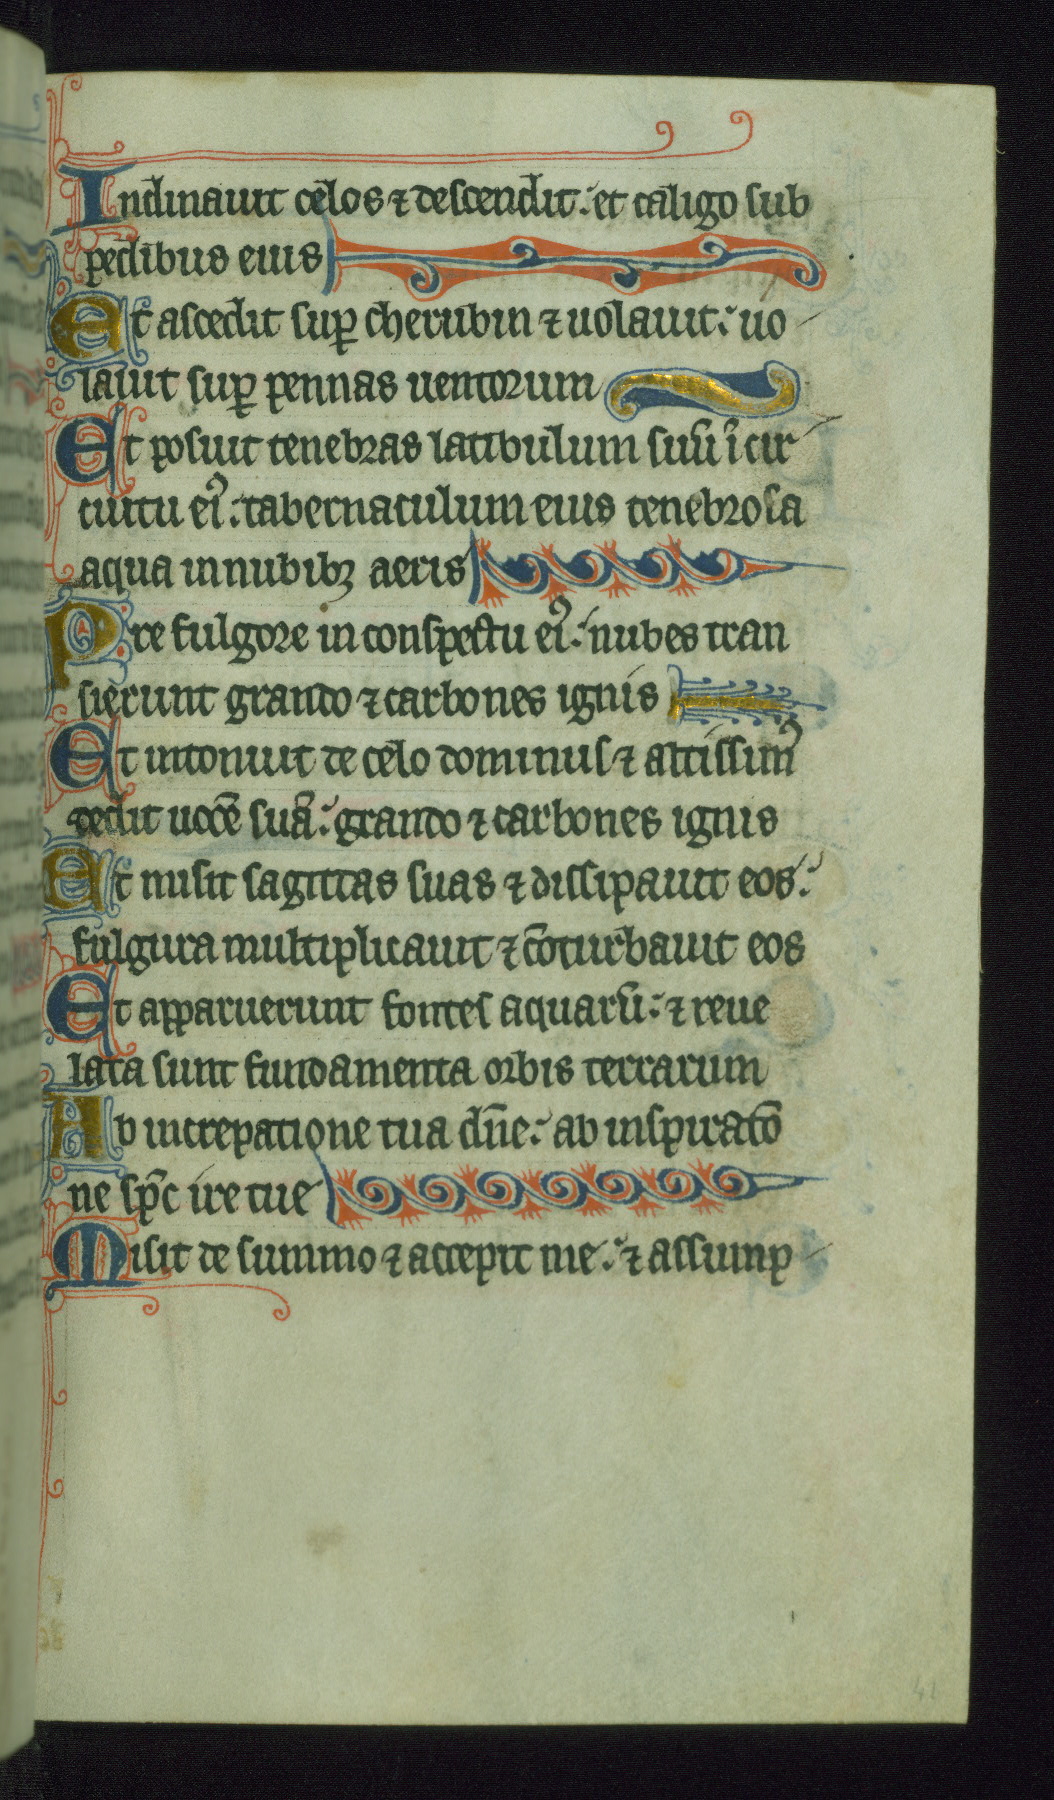 Inclinauit celos ⁊ descendit: et caligo sub
pedibus eius
Et ascēdit suꝑ cherubin ⁊ uolauit: uo
lauit suꝑ pennas uentorum
Et posuit tenebras latibulum suū ī cir
cuitu eiꝰ: tabernaculum eius tenebrosa
aqua in nubibꝫ aeris
Pre fulgore in conspectu eiꝰ: nubes tran
sierunt grando ⁊ carbones ignis
Et intonuit de celo dominus ⁊ altissimꝰ
dedit uocē suā: grando ⁊ carbones ignis
Et misit sagittas suas ⁊ dissipauit eos:
fulgura multiplicauit ⁊ cōturbauit eos
Et apparuerunt fontes aquarū: ⁊ reue
lata sunt fundamenta orbis terrarum
Ab increpatione tua dn̄e: ab inspiratō
ne sp̄c ire tue
Misit de summo ⁊ accepit me: ⁊ assump
41